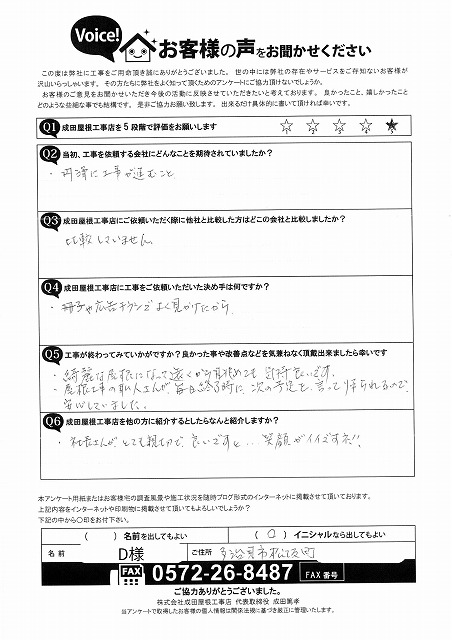 Voice!
お客様の声をお聞かせください
この度は弊社に工事をご用命頂き誠にありがとうございました。世の中には弊社の存在やサービスをご存知ないお客様が
沢山いらっしゃいます。その方たちに弊社をよく知って頂くためのアンケートにご協力頂けないでしょうか。
お客様のご意見をお聞かせいただき今後の活動に反映させていただきたいと考えております。良かったこと、嬉しかったこと
どのような些細な事でも結構です。是非ご協力お願い致します。出来るだけ具体的に書いて頂ければ幸いです。
Q1 成田屋根工事店を5段階で評価をお願いします
☆ ☆ ☆ ☆ ★
Q2 当初、工事を依頼する会社にどんなことを期待されていましたか?
・円滑に工事が進むこと
Q3 成田屋根工事店にご依頼いただく際に他社と比較した方はどこの会社と比較しましたか?
比較していません
Q4 成田屋根工事店に工事をご依頼いただいた決め手は何ですか?
・冊子や広告チラシでよく見かけたから。
Q5 工事が終わってみていかがですか?良かった事や改善点などを気兼ねなく頂戴出来ましたら幸いです
・綺麗な屋根になって遠くから眺めても気持良いです。
・屋根工事の職人さんが毎日終了時に、次の予定を言って帰られるので、
安心していました。
Q6 成田屋根工事店を他の方に紹介するとしたらなんと紹介しますか?
・社長さんがとても親切で良いですと…笑顔がイイですネ!!
本アンケート用紙またはお客様宅の調査風景や施工状況を随時ブログ形式のインターネットに掲載させて頂いております。
上記内容をインターネットや印刷物に掲載させて頂いてもよろしいでしょうか?
下記の中から〇印をお付下さい。
( ) 名前を出してもよい
( 〇 ) イニシャルなら出してもよい
名前 D様 ご住所 多治見市松坂町
FAX 0572-26-8487 FAX番号
ご協力ありがとうございました。
株式会社成田屋根工事店 代表取締役 成田篤孝
当アンケートで取得したお客様の個人情報は関係法規に基づき厳正に管理いたします。